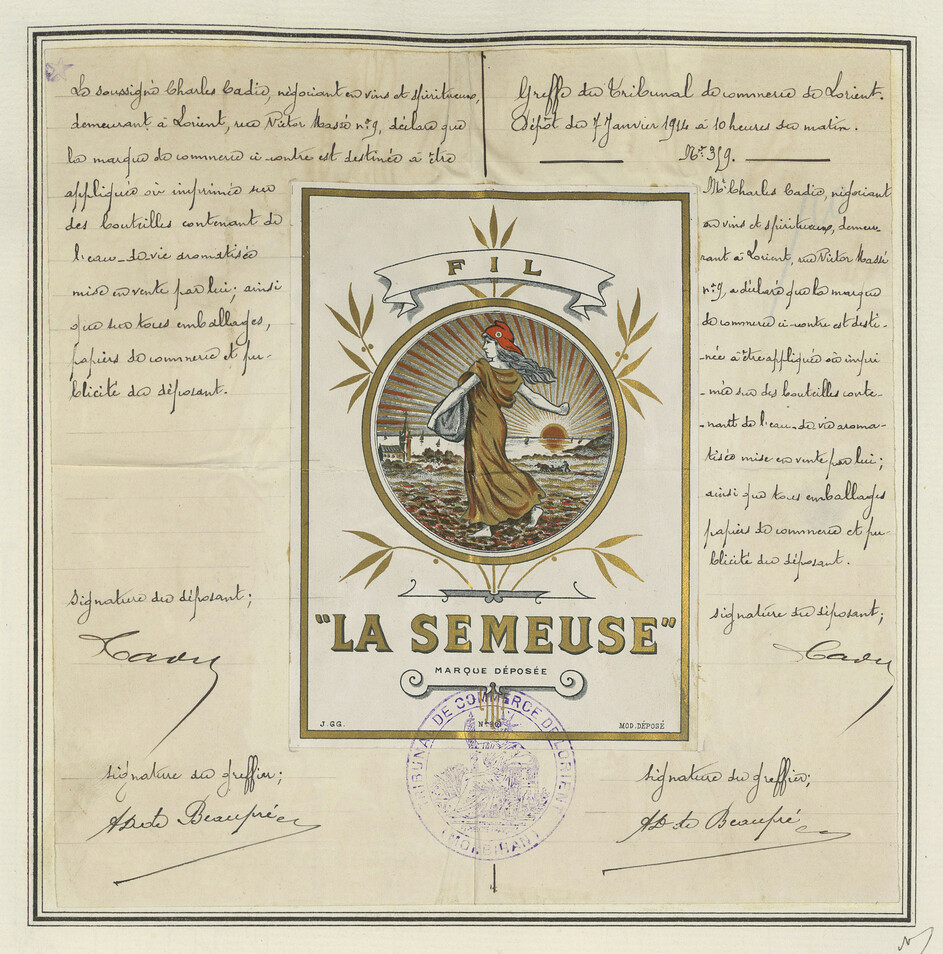 Le soussigné Charles Cadic, négociant en vins et spiritueux,
demeurant à Lorient, rue Victor Massé n° 9, déclare que
la marque de commerce ci-contre est destinée à être
appliquée où imprimée sur
des bouteilles contenant de
l'eau-de-vie aromatisée
mise en vente par lui; ainsi
que sur tous emballages,
papiers de commerce et pu-
blicité du déposant.
Signature du déposant;
Signature du greffier;
de Beaupré
Greffe du Tribunal de commerce de Lorient.
Dépôt du 7 Janvier 1914 à 10 heures du matin.
N° 319.
Mr Charles Cadic, négociant
en vins et spiritueux, demeu-
rant à Lorient, rue Victor Massé
n° 9, a déclaré que la marque
de commerce ci-contre est desti-
-née à être appliquée où impri
-mée sur des bouteilles conte-
-nant de l'eau-de-vie aroma-
-tisée mise en vente par lui;
ainsi que tous emballages
papiers de commerce et pu-
blicité du déposant.
Signature du déposant;
Signature du greffier;
de Beaupré
FIL
"LA SEMEUSE"
MARQUE DÉPOSÉE
J. GG.
MOD. DÉPOSÉ
TRIBUNAL DE COMMERCE DE LORIENT
(MORBIHAN)